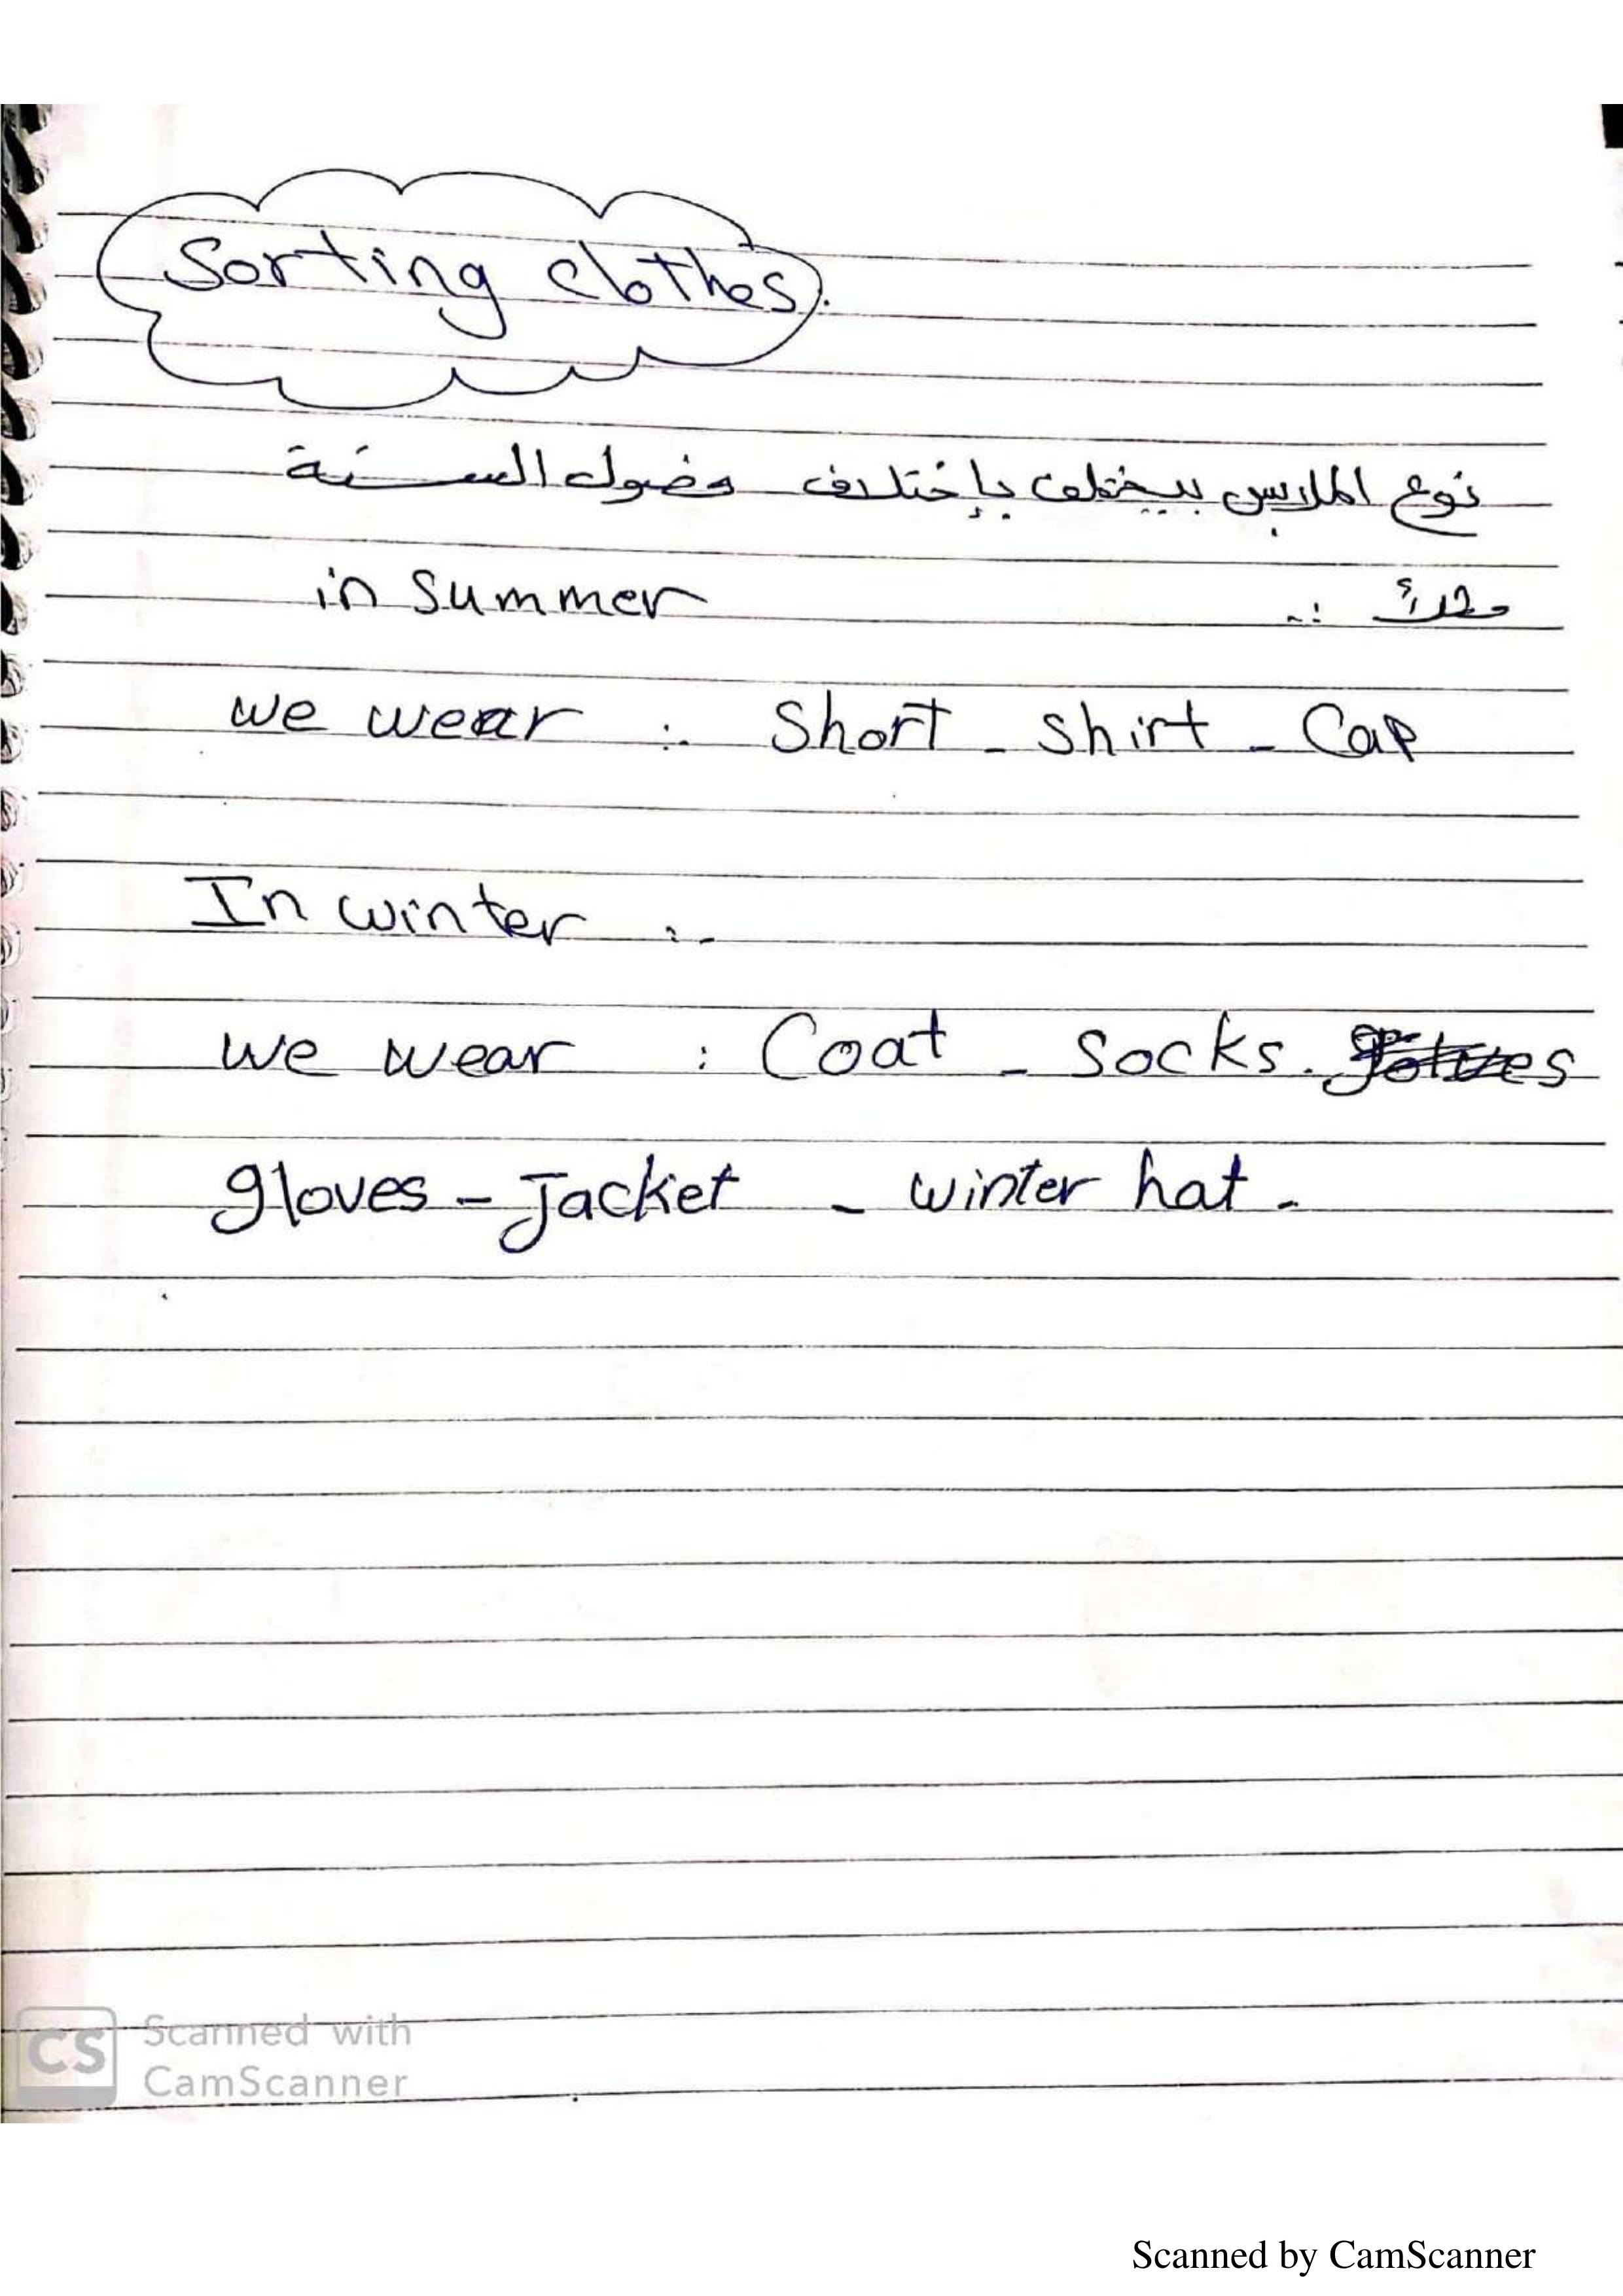 Sorting clothes.
نوع الملابس بيختلف بإختلاف فصول السنة
مثلاً :- in Summer
we wear :- Short - Shirt - Cap
In winter :-
we wear : Coat - Socks.
gloves - Jacket - winter hat -
CS Scanned with
CamScanner
Scanned by CamScanner